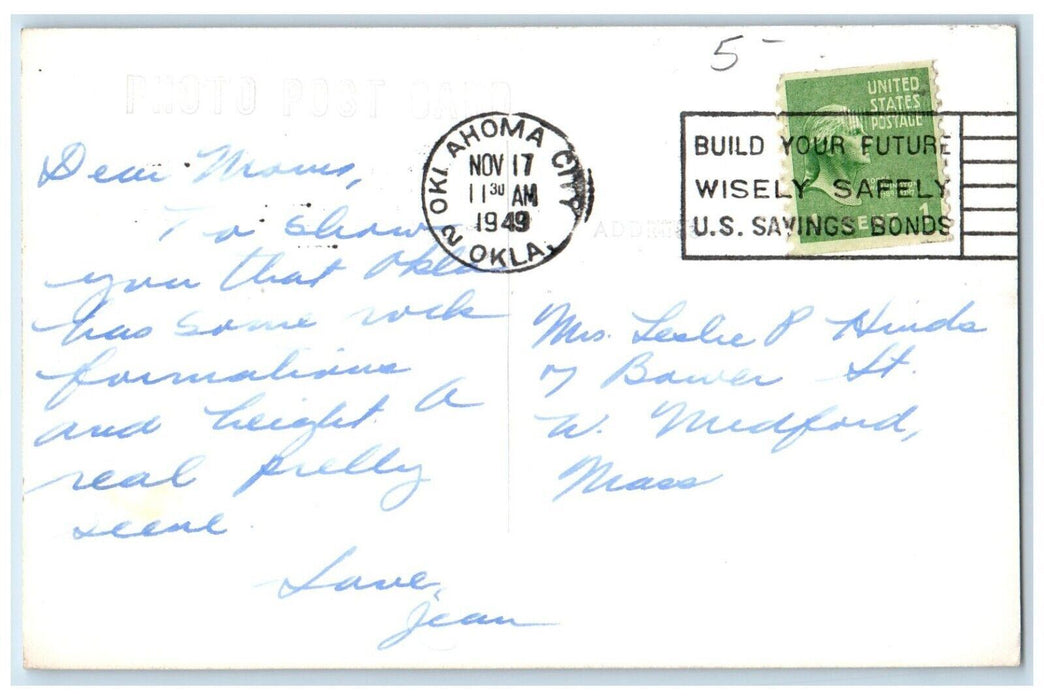 5-
PHOTO POST CARD
OKLAHOMA CITY
NOV 17
11 30 AM
1949
2 OKLA.
UNITED
STATES
POSTAGE
1
BUILD YOUR FUTURE
WISELY SAFELY
U.S. SAVINGS BONDS
ADDRESS
Dear Moms,
To show
you that Okla
has some rock
formations
and height. A
real pretty
scene
Love,
Jean
Mrs. Leslie P Hinds
7 Bower St.
W. Medford,
Mass